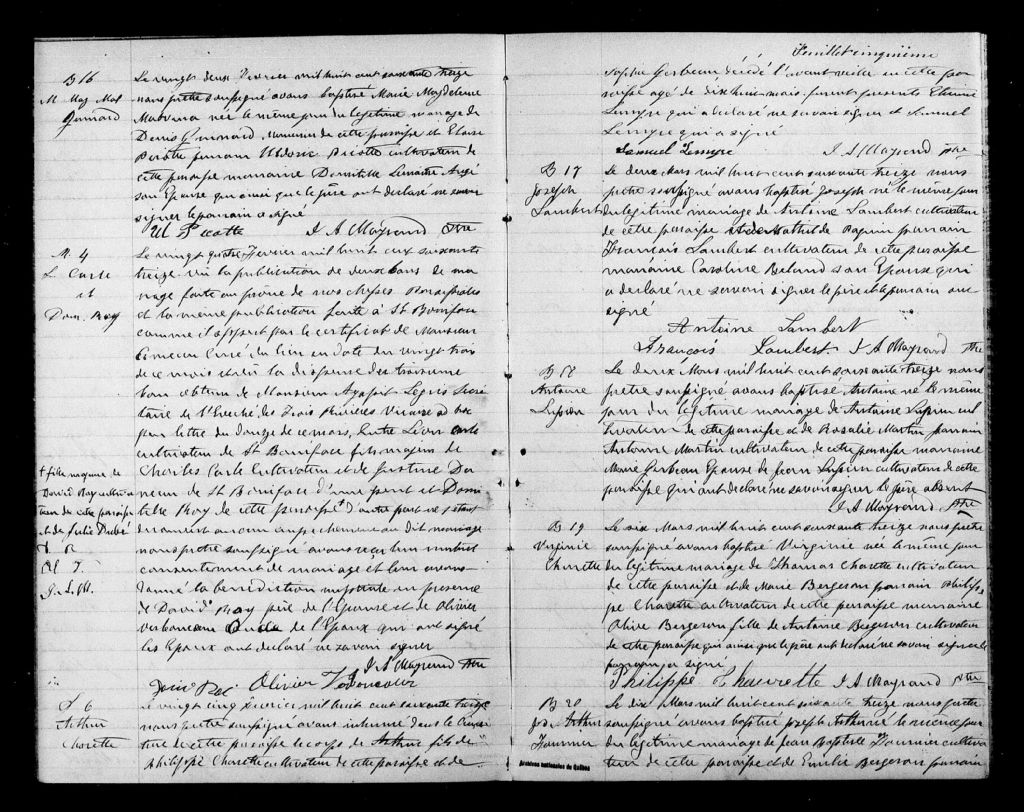 B 16
M Mag Mal
Le vingt deux Fevrier mil huit cent soixante treize
nous prêtre soussigné avons baptisé Marie Magdeleine
née le même jour du légitime mariage de
Denis de cette paroisse et
parrain cultivateur de
cette paroisse marraine
son Epouse qui ainsi que le père ont déclaré ne savoir
signer le parrain a signé
J A Mayrand Ptre
M. 4
L Carle
et
Dom. Roy
Le vingt quatre Fevrier mil huit cent soixante
treize vu la publication de deux bans de ma
riage faite au prône de nos Messes Paroissiales
et la même publication faite à St Boniface
comme il appert par le certificat de Monsieur
Curé du lieu en date du vingt trois
de ce mois et vu la dispense du troisieme
ban obtenue de Monsieur Agapit Legris Secré
taire de l'Evêché des Trois Rivières
par lettre du douze de ce mois, Entre Léon Carle
cultivateur de St Boniface fils majeur de
Charles Carle Cultivateur et de
de St Boniface d'une part et Domi
tille Roy de cette paroisse d'autre part ne s'étant
decouvert aucun empechement au dit mariage
nous prêtre soussigné avons reçu leur mutuel
consentement de mariage et leur avons
donné la bénédiction nuptiale en presence
de David Roy père de l'Epouse et de Olivier
de l'Epoux qui ont signé
les Epoux ont déclaré ne savoir signer
J A Mayrand Ptre
Olivier
† fille mineure de
David Roy
de cette paroisse
et de Julie
J. A. M.
S 6
Arthur
Charette
Le vingt cinq Fevrier mil huit cent soixante treize
nous prêtre soussigné avons inhumé dans le Cime
tière de cette paroisse le corps de Arthur fils de
Philippe Charette cultivateur de cette paroisse et de
Feuillet cinquième
Sophie Gerbeau décédé l'avant veille en cette pa
roisse agé de dix huit mois. furent presents Etienne
Lemyre qui a declaré ne savoir signer et Samuel
Lemyre qui a signé
Samuel Lemyre J A Mayrand Ptre
B 17
Joseph
Lambert
Le deux Mars mil huit cent soixante treize nous
prêtre soussigné avons baptisé Joseph né le même jour
du légitime mariage de Antoine Lambert cultivateur
de cette paroisse et de Mathilde parrain
François Lambert cultivateur de cette paroisse
marraine Caroline Beland son Epouse qui
a déclaré ne savoir signer le père et le parrain ont
signé
Antoine Lambert
François Lambert J A Mayrand Ptre
B 18
Antoine
Lupien
Le deux Mars mil huit cent soixante treize nous
prêtre soussigné avons baptisé Antoine né le même
jour du légitime mariage de Antoine Lupien cul
tivateur de cette paroisse et de Rosalie Martin parrain
Antoine Martin cultivateur de cette paroisse marraine
Marie Gerbeau Epouse de Jean Lupien cultivateur de cette
paroisse qui ont declaré ne savoir signer le père absent
J A Mayrand Ptre
B 19
Virginie
Charette
Le six Mars mil huit cent soixante treize nous prêtre
soussigné avons baptisé Virginie née le même jour
du légitime mariage de Thomas Charette cultivateur
de cette paroisse et de Marie Bergeron parrain Philip
pe Charette cultivateur de cette paroisse marraine
Olive Bergeron fille de Antoine Bergeron cultivateur
de cette paroisse qui ainsi que le père ont déclaré ne savoir signer le
parrain a signé
Philippe Charette J A Mayrand Ptre
B 20
Jos. Arthur
Fournier
Le dix Mars mil huit cent soixante treize nous prêtre
soussigné avons baptisé Joseph Arthur né le même jour
du légitime mariage de Jean Baptiste Fournier cultiva
teur de cette paroisse et de Emilie Bergeron parrain
Archives nationales du Québec